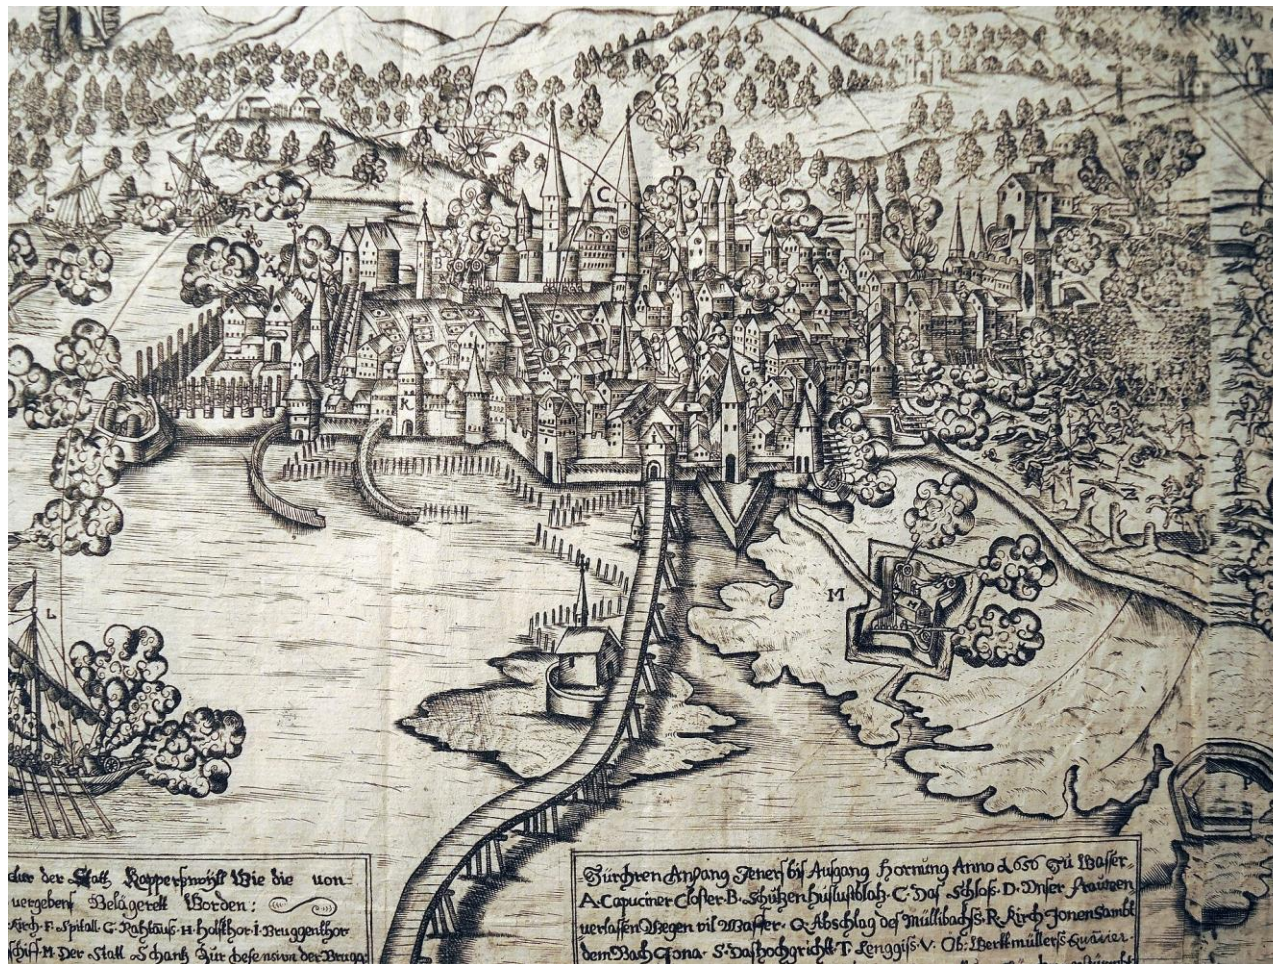 L
L
A
C
D
H
V
K
L
M
der Statt Rapperswÿll Wie die von
vergebens Belägerett Worden:
Kirch · F · Spitall · G · Rahthaus · H · Holsthor · I · Bruggenthor
schif · M · Der Statt Schantz Zur defension der Brugg
Zürchren Anfang Jeners bis Ausgang Hornung Anno 1656 Zu Wasser
A · Capuciner Closter · B · Schützenhus lustblatz · C · Das Schlos · D · Unser frauwen
verlassen Wegen vil Wasser · Q · Abschlag des Müllibachs · R · Kirch Jonen sambt
dem Bach Jona · S · Das hochgricht · T · Lenggiss · V · Ob: Werttmüllers Quavier ·